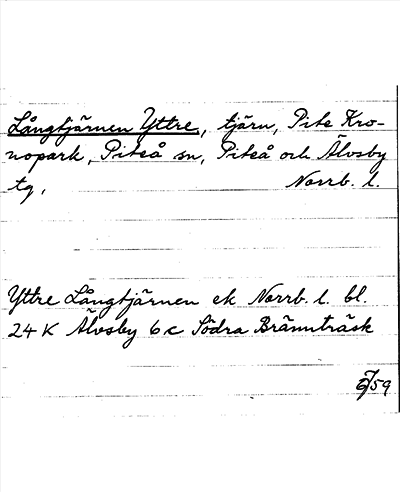 Långtjärnen Yttre, tjärn, Pite Kro-
nopark, Piteå sn, Piteå och Älvsby
tg, Norrb. l.
Yttre Långtjärnen ek Norrb. l. bl.
24 K Älvsby 6 c Södra Brännträsk